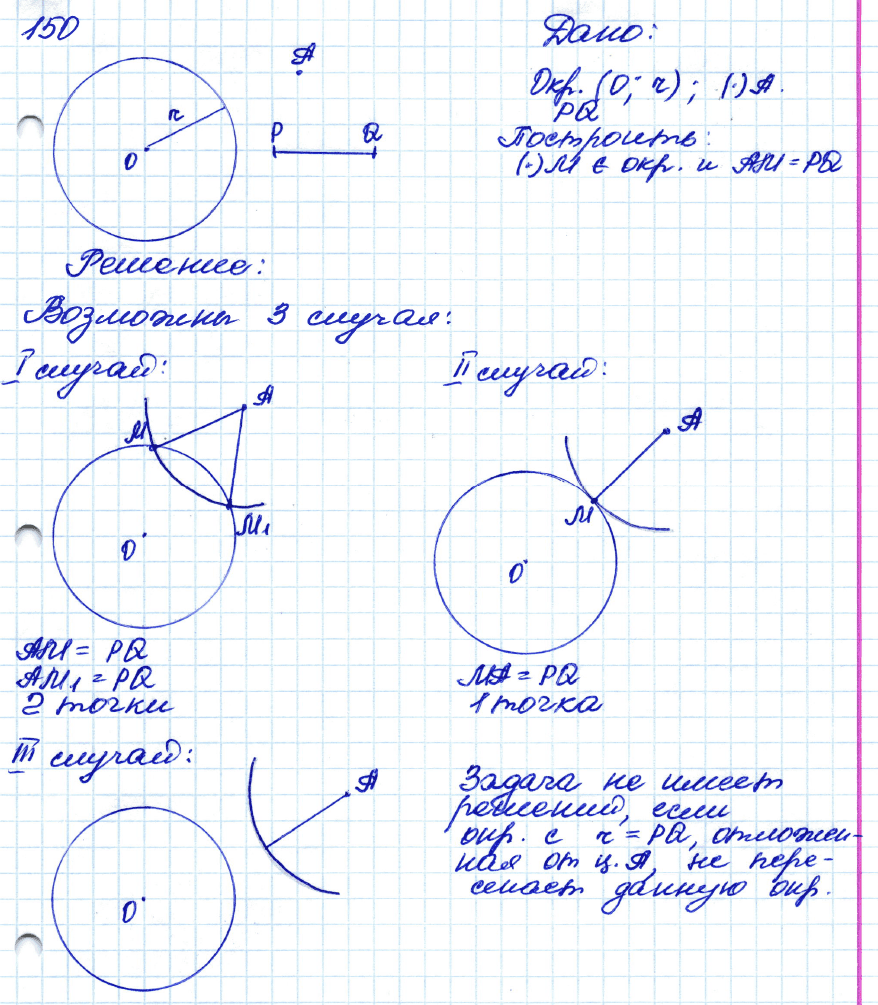 150
Дано:
A
r
O
P Q
Окр. (O; r); (·) A.
PQ
Построить:
(·) M ∈ окр. и AM = PQ
Решение:
Возможны 3 случая:
I случай:
A
M
M₁
O
AM = PQ
AM₁ = PQ
2 точки
II случай:
A
M
O
MA = PQ
1 точка
III случай:
A
O
Задача не имеет
решений, если
окр. с r = PQ, отложен-
ная от ц. A, не пере-
секает данную окр.